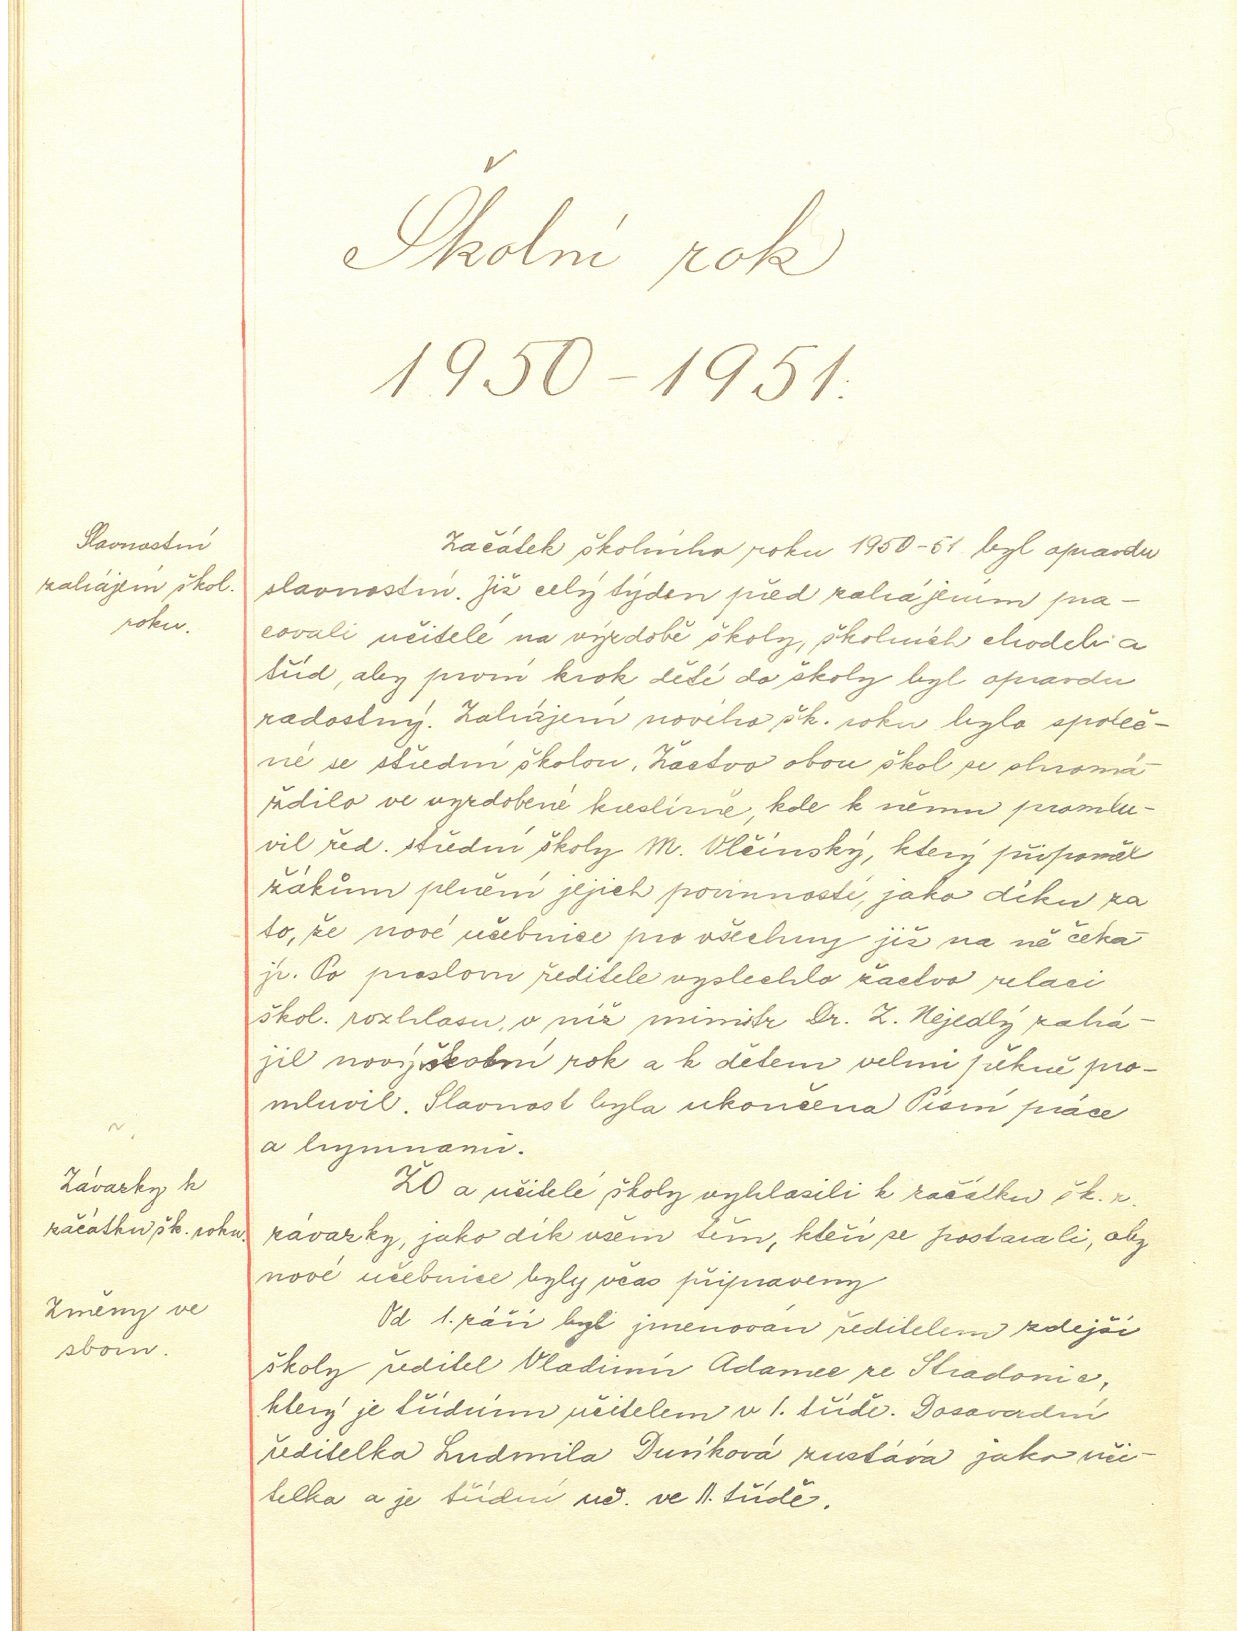 Školní rok
1950-1951.
Slavnostní
zahájení škol.
roku.
Začátek školního roku 1950-51 byl opravdu
slavnostní. Již celý týden před zahájením pra-
covali učitelé na výzdobě školy, školních chodeb a
tříd, aby první krok dětí do školy byl opravdu
radostný. Zahájení nového šk. roku bylo společ-
né se střední školou. Žactvo obou škol se shromá-
ždilo ve vyzdobené kreslírně, kde k němu promlu-
vil řed. střední školy M. Vlčinský, který připoměl
žákům plnění jejich povinností, jako díku za
to, že nové učebnice pro všechny již na ně čeka-
jí. Po proslovu ředitele vyslechlo žactvo relaci
škol. rozhlasu, v níž ministr Dr. Z. Nejedlý zahá-
jil nový školní rok a k dětem velmi pěkně pro-
mluvil. Slavnost byla ukončena Písní práce
a hymnami.
Závazky k
začátku šk. roku.
ŽO a učitelé školy vyhlásili k začátku šk. r.
závazky, jako dík všem těm, kteří se postarali, aby
nové učebnice byly včas připraveny
Změny ve
sboru.
Od 1. září byl jmenován ředitelem zdejší
školy ředitel Vladimír Adamec ze Stradonic,
který je třídním učitelem v 1. třídě. Dosavadní
ředitelka Ludmila zustává jako uči-
telka a je třídní uč. ve II. třídě.